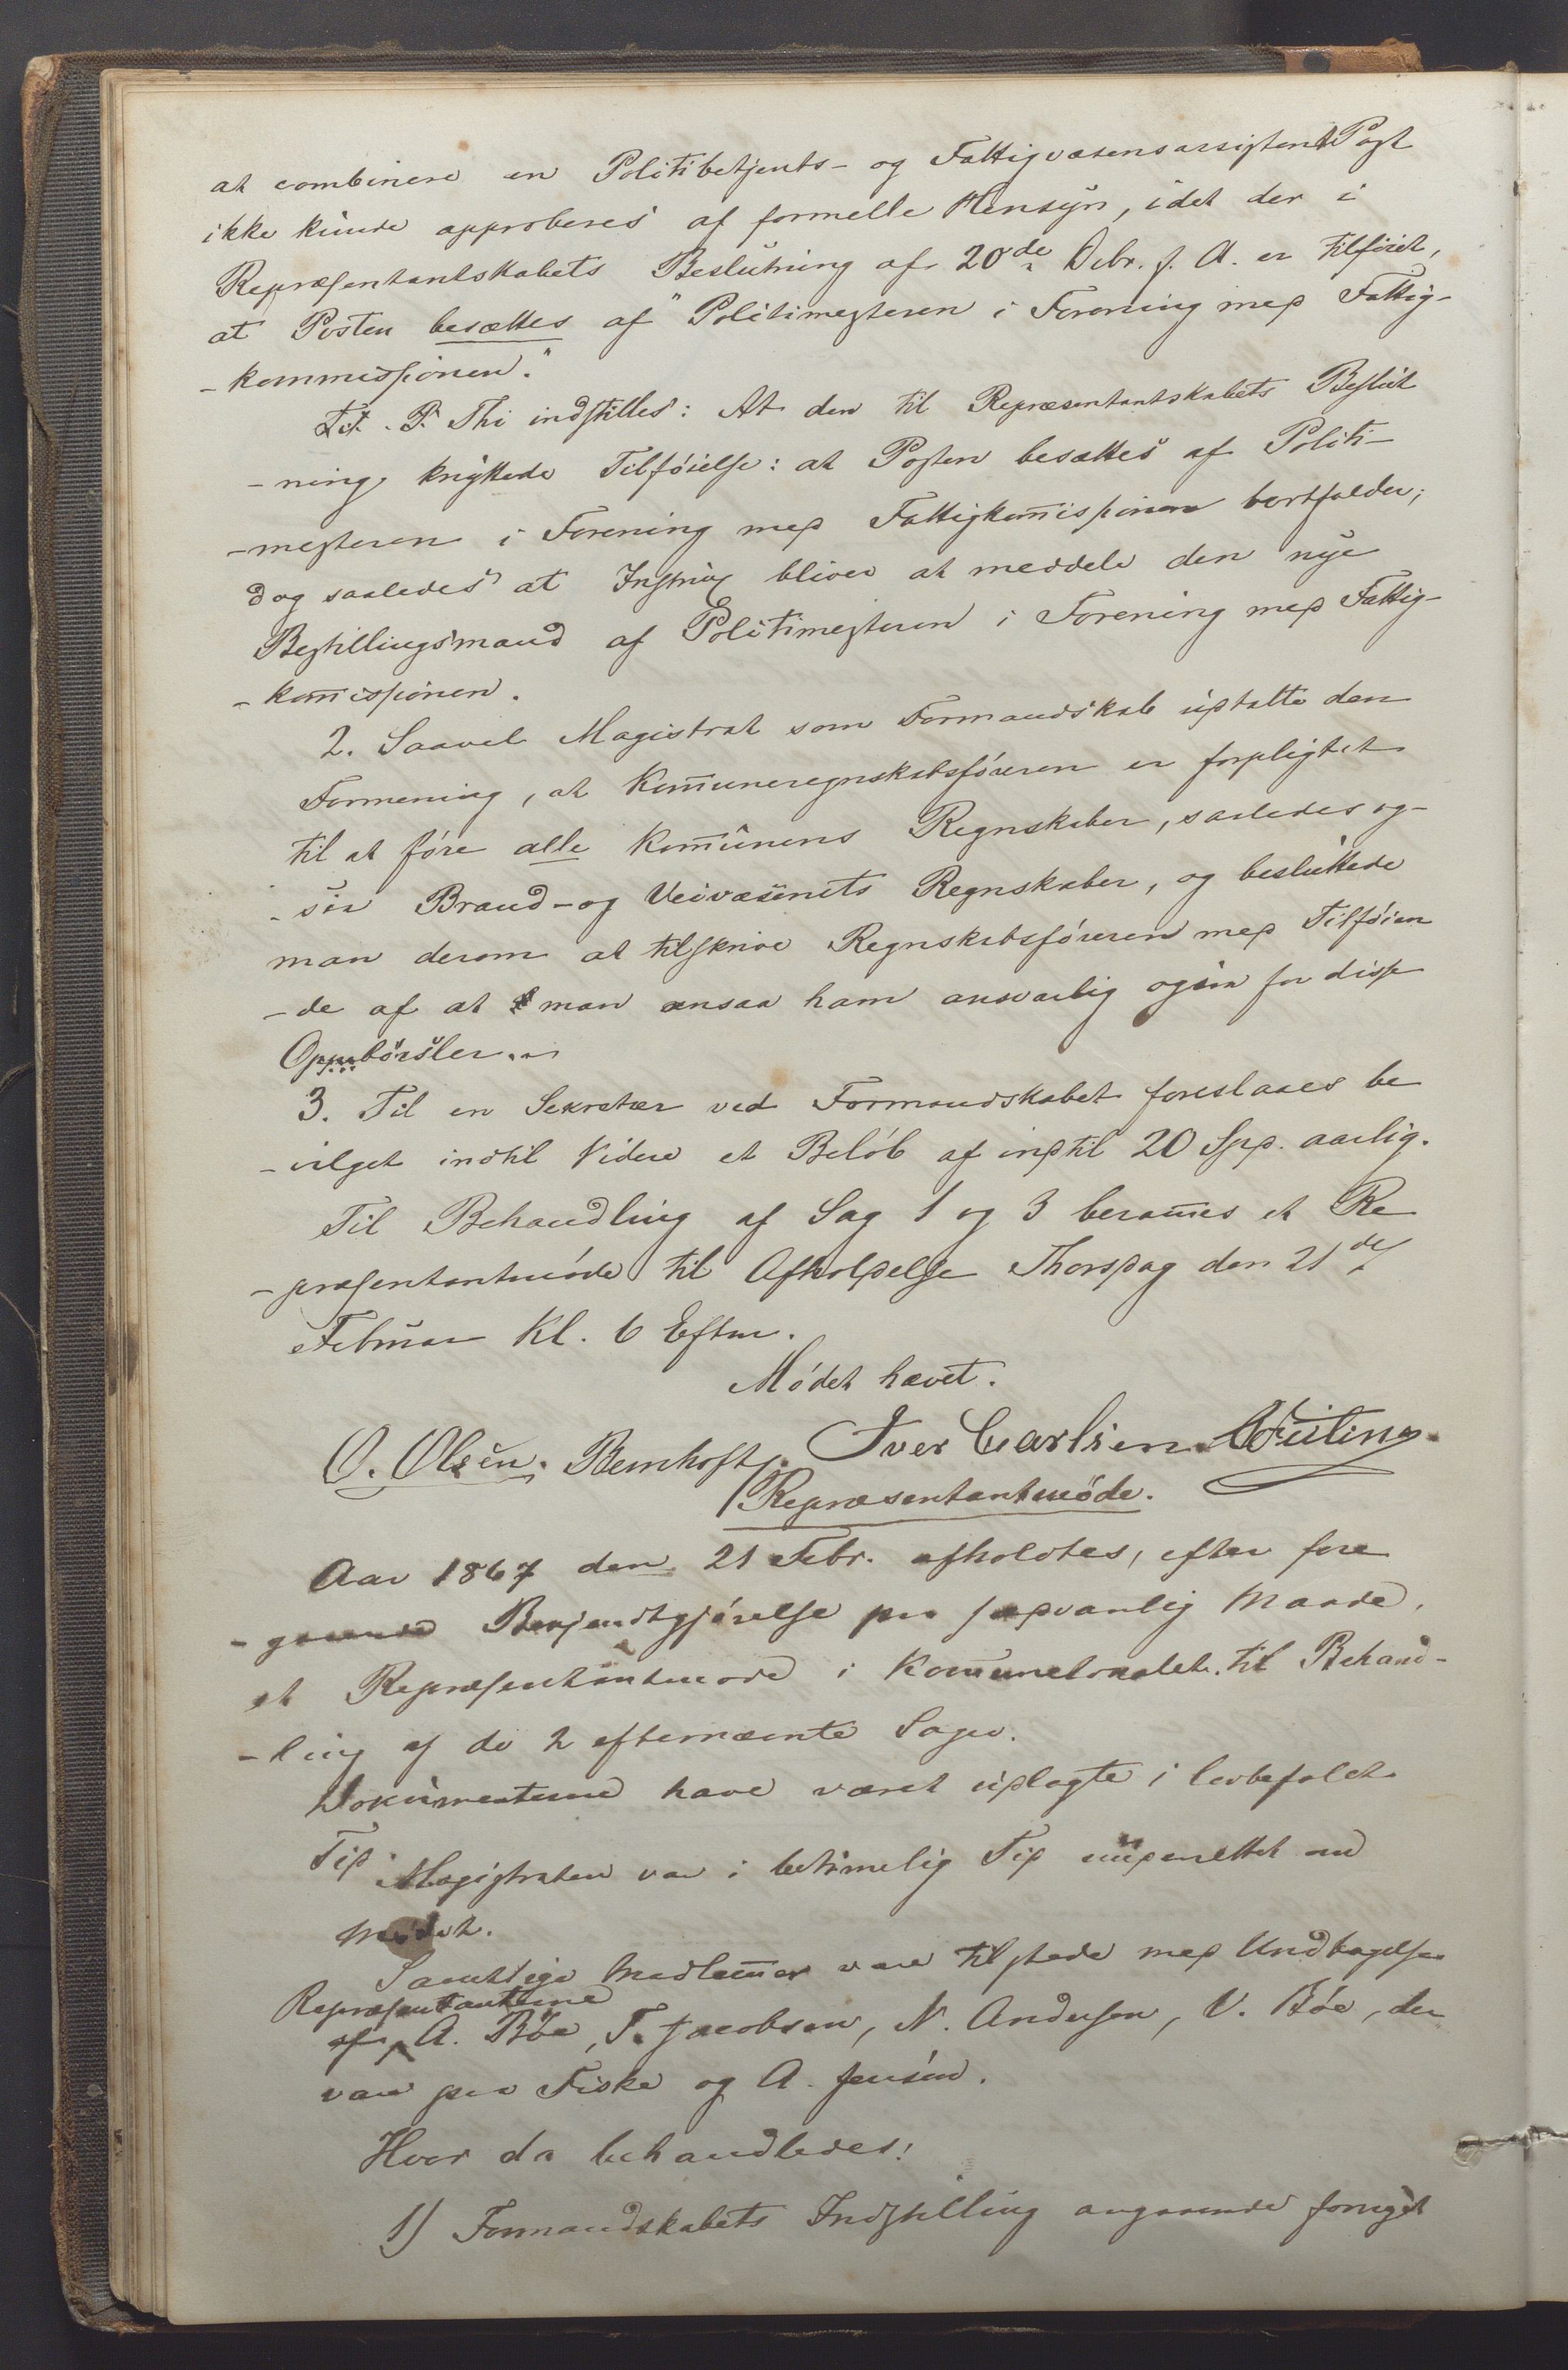 at combinere en Politibetjents- og Fattigvæsensassistent Post
ikke kunde approberes af formelle Hensyn, idet der i
Repræsentantskabets Beslutning af 20de Debr. f. A. er tilføiet,
at Posten besættes af "Politimesteren i Forening med Fattig-
-kommissionen."
Thi indstilles: At den til Repræsentantskabets Beslut
-ning knyttede Tilføielse: at Posten besættes af Politi-
-mesteren i Forening med Fattigkom̄issionen bortfalder;
dog saaledes at Instrux bliver at meddele den nye
Bestillingsmand af Politimesteren i Forening med Fattig-
-kom̄issionen.
2. Saavel Magistrat som Formandskab udtalte den
Formening, at Kom̄uneregnskabsføreren er forpligtet
til at føre alle Kom̄unens Regnskaber, saaledes og-
-saa Brand- og Veivæsenets Regnskaber, og besluttede
man derom at tilskrive Regnskabsføreren med Tilføien
-de af at man ansaa ham ansvarlig ogsaa for disse
Oppebørsler.
3. Til en Sekretær ved Formandskabet foreslaaes be
-vilget indtil Videre et Beløb af indtil 20 Spd. aarlig.
Til Behandling af Sag 1 og 3 beram̄es et Re
-præsentantmøde til Afholdelse Thorsdag den 21de
Februar Kl. 6 Eftm.
Mødet hævet.
O. Olsen. Bernhoft. Iver Carlsen.
Repræsentantmøde.
Aar 1867 den 21 Febr. afholdtes, efter fore
-gaaende Bekjendtgjørelse paa sedvanlig Maade,
et Repræsentantmøde i Kom̄unelokalet til Behand-
-ling af de 2 efternævnte Sager.
Dokumenterne have været udlagte i lovbefalet
Tid. Magistraten var i betimelig Tid underrettet om
Mødet.
Samtlige Medlem̄er vare tilstede med Undtagelse
Repræsentanterne
af A. Bøe, T. Jacobsen, N. Andersen, V. Bøe, der
vare paa Fiske og A. Jensen.
Hvor da behandledes:
1) Formandskabets Indstilling angaaende forøget